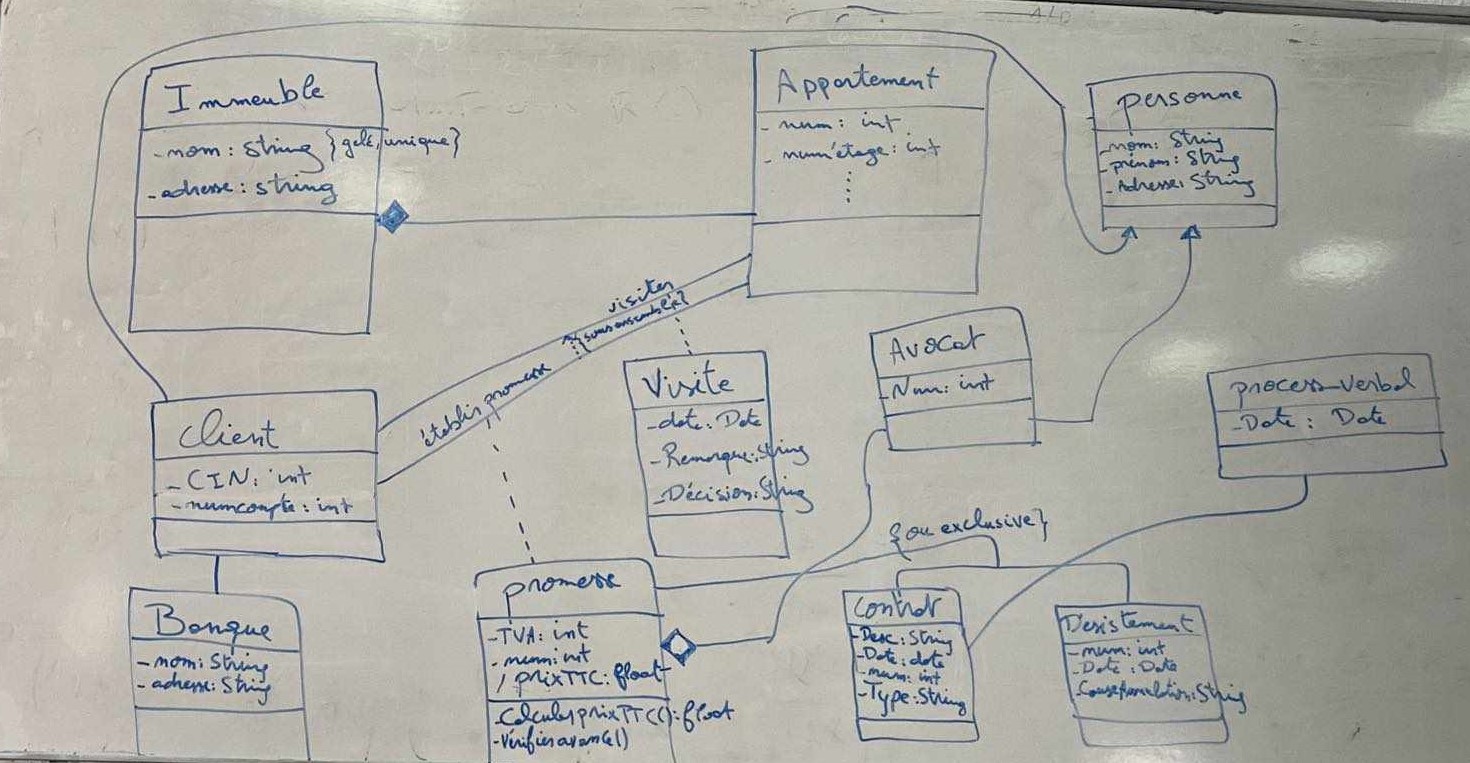 Immeuble
- nom : String {gelé, unique}
- adresse : string
Appartement
- num : int
- num étage : int
personne
- nom : String
- prénom : String
- Adresse : String
visiter
{sous ensemble}
établir promesse
Client
- CIN : int
- numcompte : int
Visite
- date : Date
- Remarque : String
- Décision : String
Avocat
- Num : int
process-verbal
- Date : Date
{ou exclusive}
Banque
- nom : String
- adresse : String
promesse
- TVA : int
- num : int
/ prixTTC : float
- CalculerprixTTC() : float
- Vérifieravance()
Contrat
- Desc : String
- Date : date
- num : int
- Type : String
Désistement
- num : int
- Date : Date
- CauseAnnulation : String